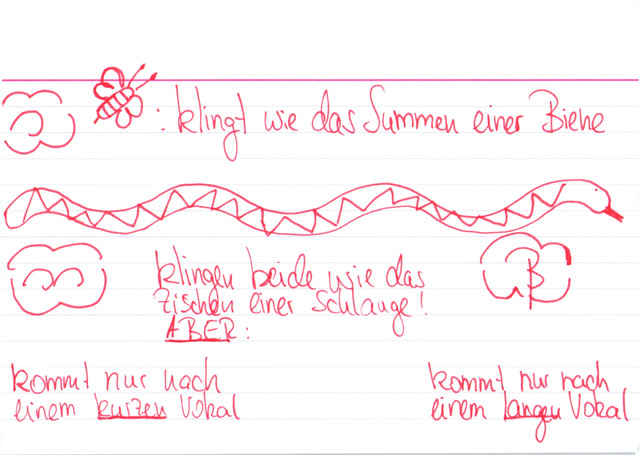 : klingt wie das Summen einer Biene
klingen beide wie das
zischen einer Schlange!
ß
ABER:
kommt nur nach
einem kurzen Vokal
kommt nur nach
einem langen Vokal